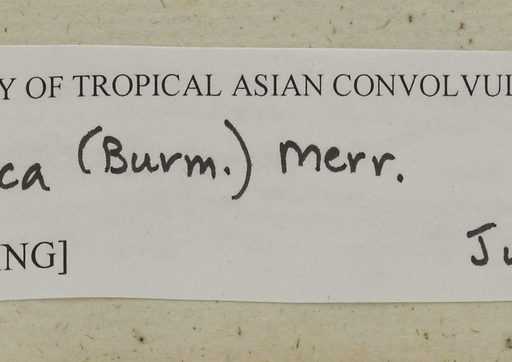 Y OF TROPICAL ASIAN CONVOLVUL
ca (Burm.) Merr.
ING]
Ju